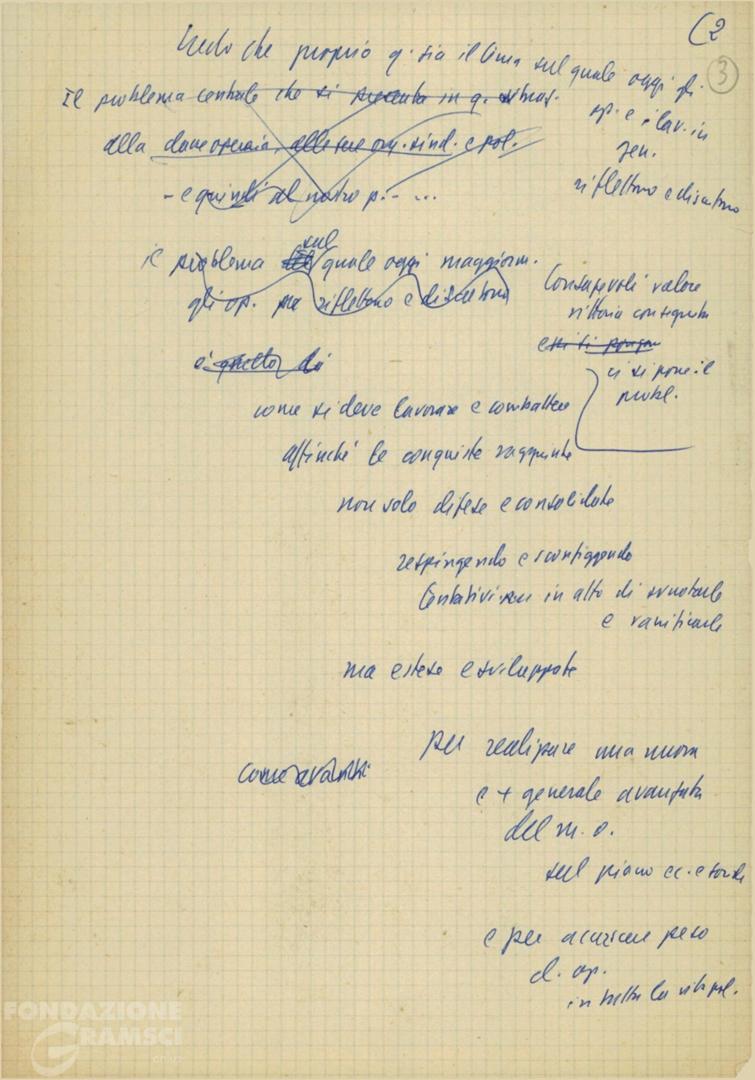 (2
3
Credo che proprio q. sia il tema sul quale oggi gli
op. e i lav. in
gen.
riflettono e discutono
Il problema centrale che si presenta in q. 
alla classe operaia, alle sue org. sind. e pol.
- e quindi al nostro p. - ...
il problema sul quale oggi maggiorm.
gli op. riflettono e discutono
è quello di
Consapevoli valore
vittoria conseguita
essi si pongono
ci si pone il
probl.
come si deve lavorare e combattere
affinché le conquiste raggiunte
non solo difese e consolidate
respingendo e sconfiggendo
tentativi in atto di svuotarle
e vanificarle
ma estese e sviluppate
per realizzare una nuova
e + generale avanzata
del m. o.
come avanti
sul piano ec. e soc.
e per accrescere peso
d. op.
in tutta la vita pol.
FONDAZIONE
GRAMSCI